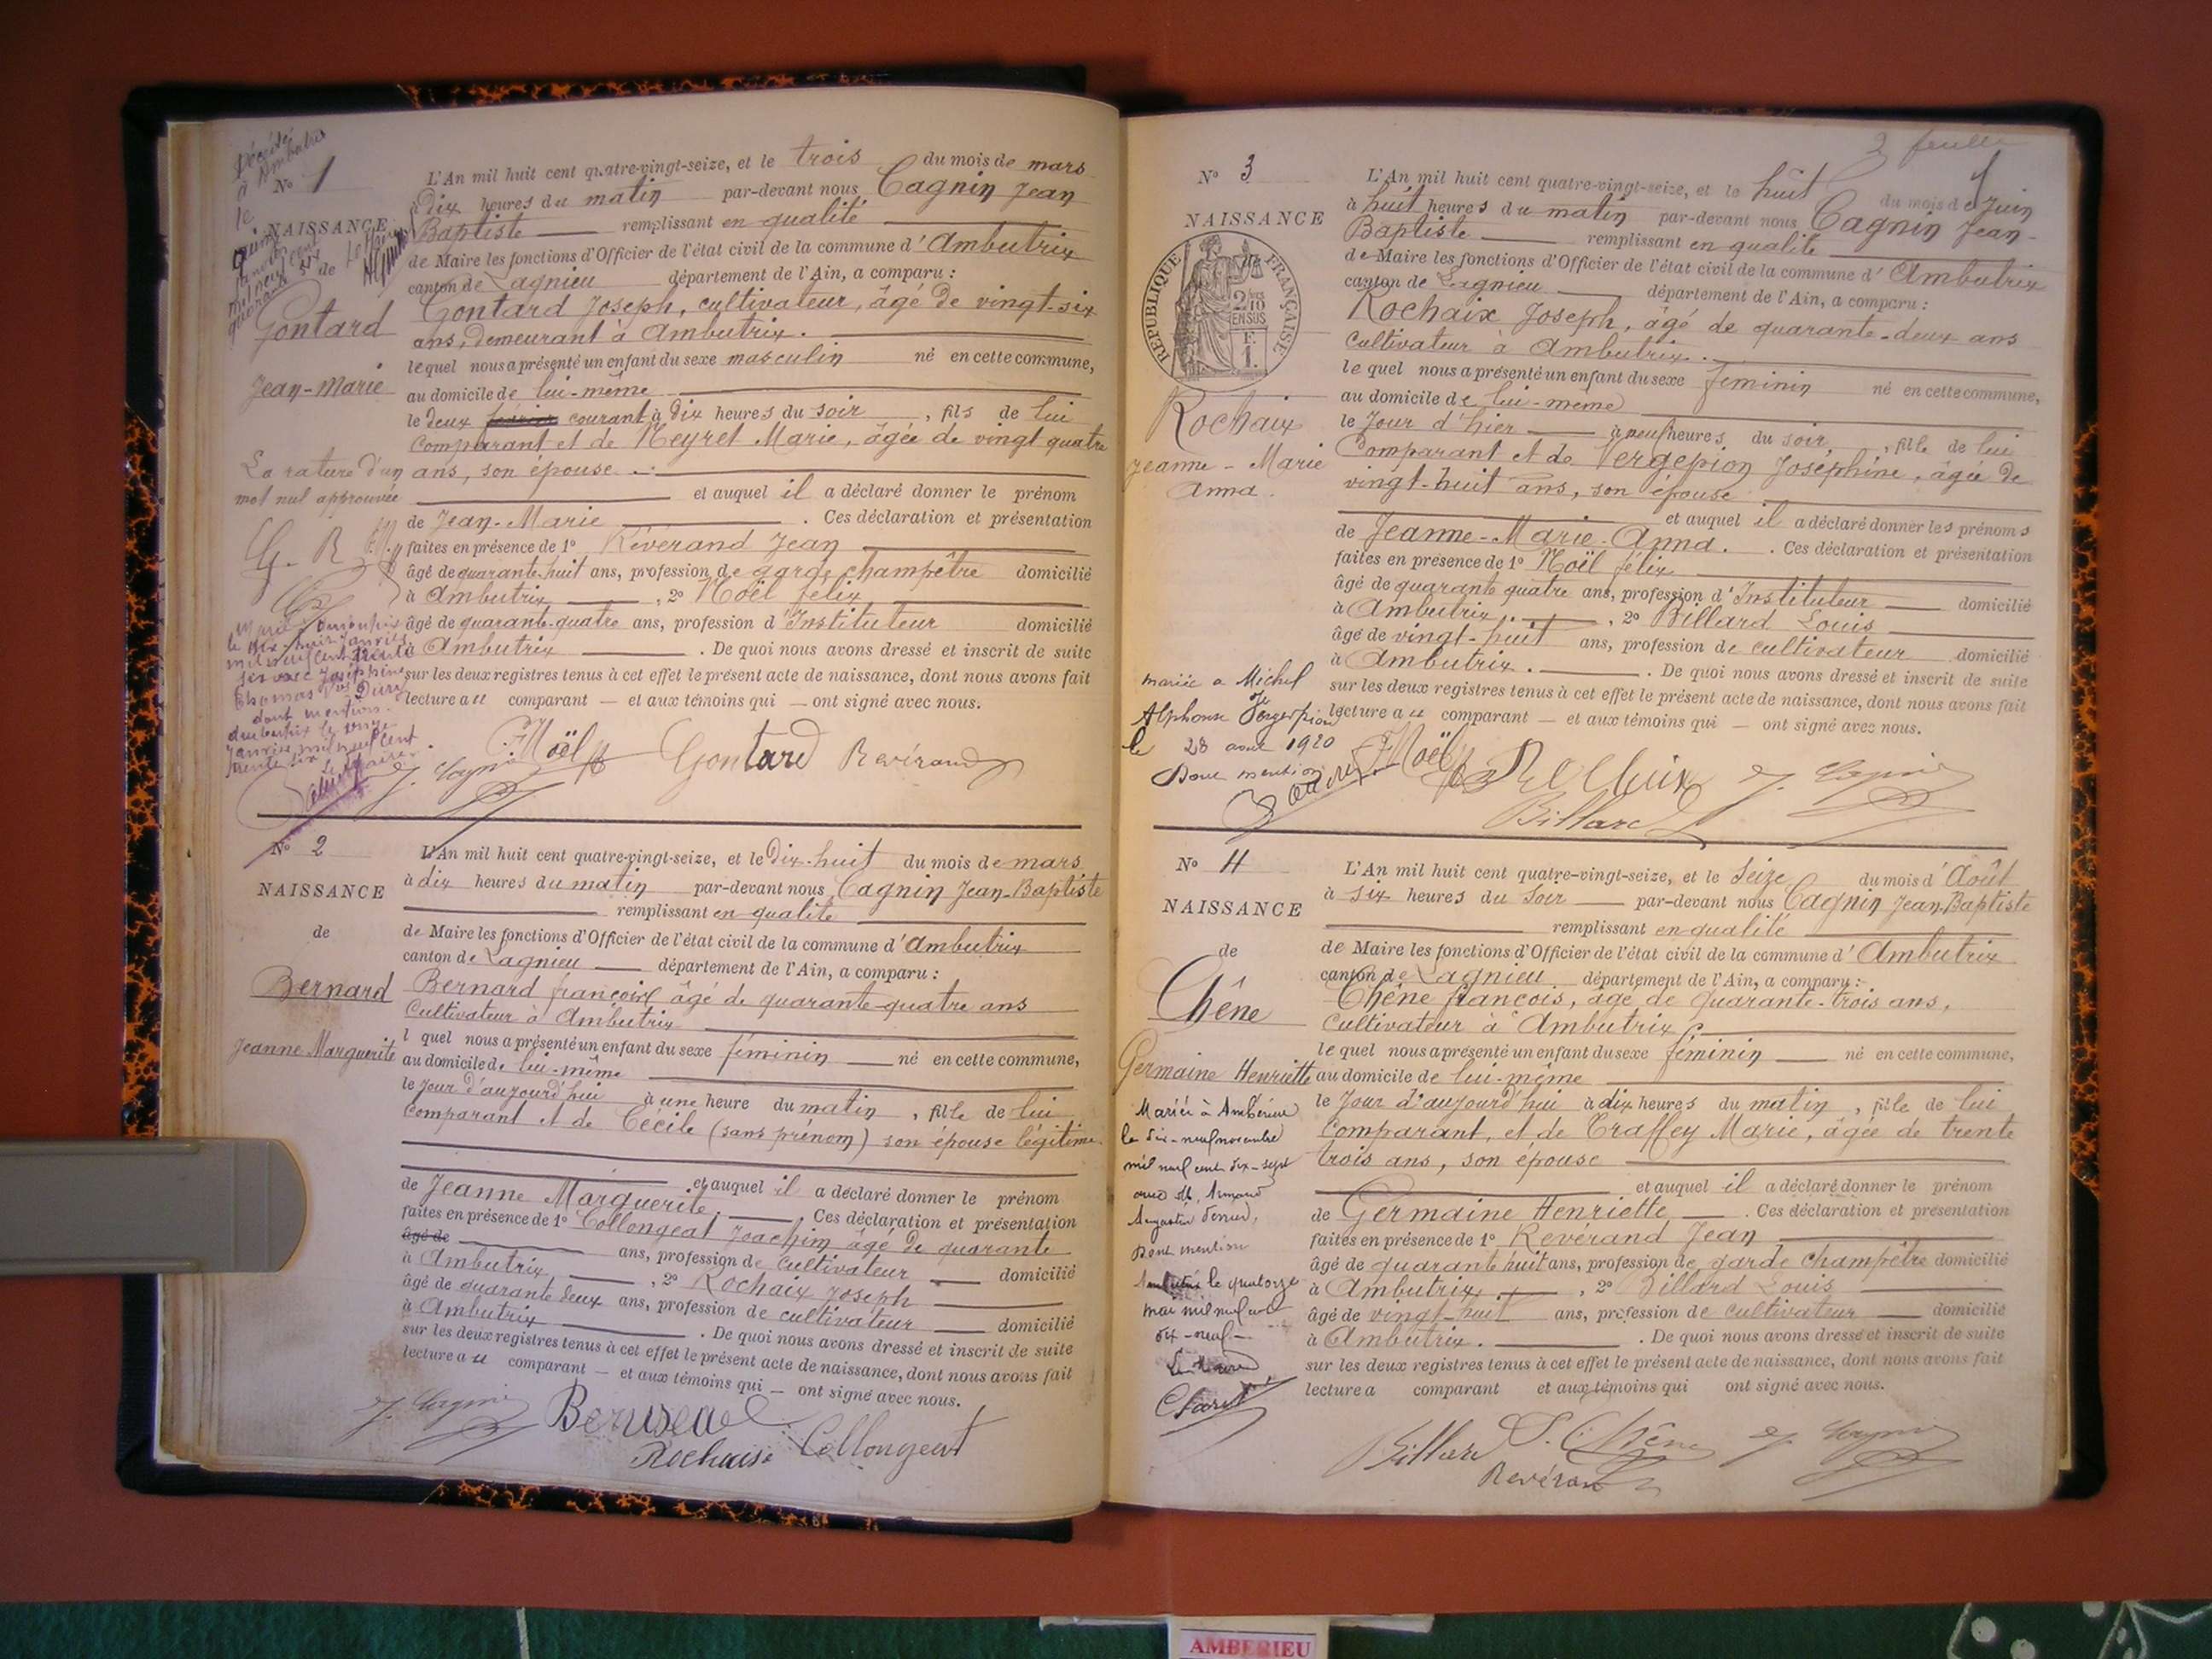 Décédé
à Ambutrix
No 1
le
NAISSANCE
de
Gontard
Jean-Marie
La rature d'un
mot nul approuvée
G. R
L'An mil huit cent quatre-vingt-seize, et le trois du mois de mars
à Dix heures du matin par-devant nous Cagnin Jean
Baptiste remplissant en qualité
de Maire les fonctions d'Officier de l'état civil de la commune d'Ambutrix
canton de Lagnieu département de l'Ain, a comparu :
Gontard Joseph, cultivateur, âgé de vingt-six
ans, demeurant à Ambutrix.
lequel nous a présenté un enfant du sexe masculin né en cette commune,
au domicile de lui-même
le deux courant à dix heures du soir, fils de lui
Comparant et de Neyret Marie, âgée de vingt quatre
ans, son épouse.
et auquel il a déclaré donner le prénom
de Jean-Marie. Ces déclaration et présentation
faites en présence de 1º Révérand Jean
âgé de quarante-huit ans, profession de garde champêtre domicilié
à Ambutrix, 2º Noël félix
âgé de quarante-quatre ans, profession d'Instituteur domicilié
à Ambutrix. De quoi nous avons dressé et inscrit de suite
sur les deux registres tenus à cet effet le présent acte de naissance, dont nous avons fait
lecture au comparant — et aux témoins qui — ont signé avec nous.
F. Noël Gontard Revérand
J. Cagnin
No 2
NAISSANCE
de
Bernard
Jeanne Marguerite
L'An mil huit cent quatre-vingt-seize, et le Dix-huit du mois de mars
à dix heures du matin par-devant nous Cagnin Jean-Baptiste
remplissant en qualité
de Maire les fonctions d'Officier de l'état civil de la commune d'Ambutrix
canton de Lagnieu département de l'Ain, a comparu :
Bernard françois âgé de quarante-quatre ans
Cultivateur à Ambutrix
l quel nous a présenté un enfant du sexe féminin né en cette commune,
au domicile de lui-même
le Jour d'aujourd'hui à une heure du matin, fille de lui
comparant et de Cécile (sans prénom) son épouse légitime.
et auquel il a déclaré donner le prénom
de Jeanne Marguerite. Ces déclaration et présentation
faites en présence de 1º Collongeat Joachim âgé de quarante
âgé de ans, profession de cultivateur domicilié
à Ambutrix, 2º Rochaix Joseph
âgé de quarante deux ans, profession de cultivateur domicilié
à Ambutrix. De quoi nous avons dressé et inscrit de suite
sur les deux registres tenus à cet effet le présent acte de naissance, dont nous avons fait
lecture au comparant — et aux témoins qui — ont signé avec nous.
J. Cagnin Bernard
Rochaix Collongeat
No 3
NAISSANCE
RÉPUBLIQUE FRANÇAISE
Rochaix
Jeanne - Marie
Anna.
mariée a Michel
Alphonse
le 28 août 1920
Dont mention
L'An mil huit cent quatre-vingt-seize, et le huit du mois de Juin
à huit heures du matin par-devant nous Cagnin Jean-
Baptiste remplissant en qualité
de Maire les fonctions d'Officier de l'état civil de la commune d'Ambutrix
canton de Lagnieu département de l'Ain, a comparu :
Rochaix Joseph, âgé de quarante-deux ans
Cultivateur à Ambutrix.
le quel nous a présenté un enfant du sexe féminin né en cette commune,
au domicile de lui-même
le Jour d'hier à neuf heures du soir, fille de lui
Comparant et de Vergepion Joséphine, âgée de
vingt-huit ans, son épouse
et auquel il a déclaré donner les prénoms
de Jeanne-Marie-Anna. Ces déclaration et présentation
faites en présence de 1º Noël félix
âgé de quarante quatre ans, profession d'Instituteur domicilié
à Ambutrix, 2º Billard Louis
âgé de vingt-huit ans, profession de cultivateur domicilié
à Ambutrix. De quoi nous avons dressé et inscrit de suite
sur les deux registres tenus à cet effet le présent acte de naissance, dont nous avons fait
lecture au comparant — et aux témoins qui — ont signé avec nous.
F. Noël Rochaix J. Cagnin
Billard
No 4
NAISSANCE
de
Chêne
Germaine Henriette
Mariée à Ambérieu
le dix-neuf novembre
mil neuf cent dix-sept
dont mention
Ambutrix le quatorze
mai mil neuf cent
dix-neuf
Le Maire
L'An mil huit cent quatre-vingt-seize, et le Seize du mois d'Août
à six heures du soir par-devant nous Cagnin Jean-Baptiste
remplissant en qualité
de Maire les fonctions d'Officier de l'état civil de la commune d'Ambutrix
canton de Lagnieu département de l'Ain, a comparu :
Chêne françois, âgé de quarante-trois ans,
Cultivateur à Ambutrix.
le quel nous a présenté un enfant du sexe féminin né en cette commune,
au domicile de lui-même
le Jour d'aujourd'hui à dix heures du matin, fille de lui
Comparant, et de Traffey Marie, âgée de trente
trois ans, son épouse
et auquel il a déclaré donner le prénom
de Germaine Henriette. Ces déclaration et présentation
faites en présence de 1º Revérand Jean
âgé de quarante huit ans, profession de garde champêtre domicilié
à Ambutrix, 2º Billard Louis
âgé de vingt-huit ans, profession de cultivateur domicilié
à Ambutrix. De quoi nous avons dressé et inscrit de suite
sur les deux registres tenus à cet effet le présent acte de naissance, dont nous avons fait
lecture a comparant et aux témoins qui ont signé avec nous.
Billard Chêne J. Cagnin
Revérand
AMBERIEU